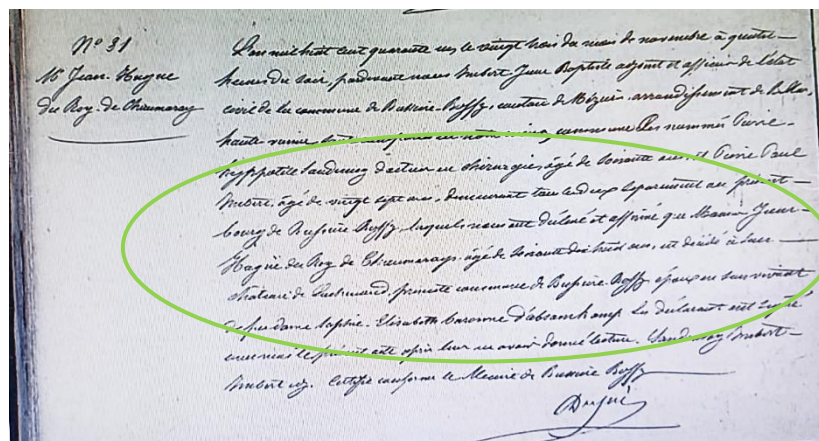 N° 31
Mr Jean. Hague
du Roy. de Chaumaray
L'an mil huit cent quarante un le vingt trois du mois de novembre à quatre
heures du soir, pardevant nous Imbert Jean Baptiste adjoint et officier de l'état
civil de la commune de Bussière-Boffy, canton de Mézières, arrondissement de Bellac,
haute vienne, commune les nommés Pierre
hyppolite docteur en chirurgie, âgé de soixante ans et Pierre Paul
Imbert, âgé de vingt sept ans, demeurant tous les deux séparément au présent
bourg de Bussière Boffy, lesquels nous ont déclaré et affirmé que Jean
Hague du Roy de Chaumaray, âgé de soixante dix huit ans, est décédé à son
château de présente commune de Bussière-Boffy, époux en son vivant
de feue dame Sophie-Elisabeth baronne les déclarants ont signé
avec moi le présent acte après leur en avoir donné lecture. Imbert
Imbert adj. Certifié conforme le Maire de Bussière Boffy